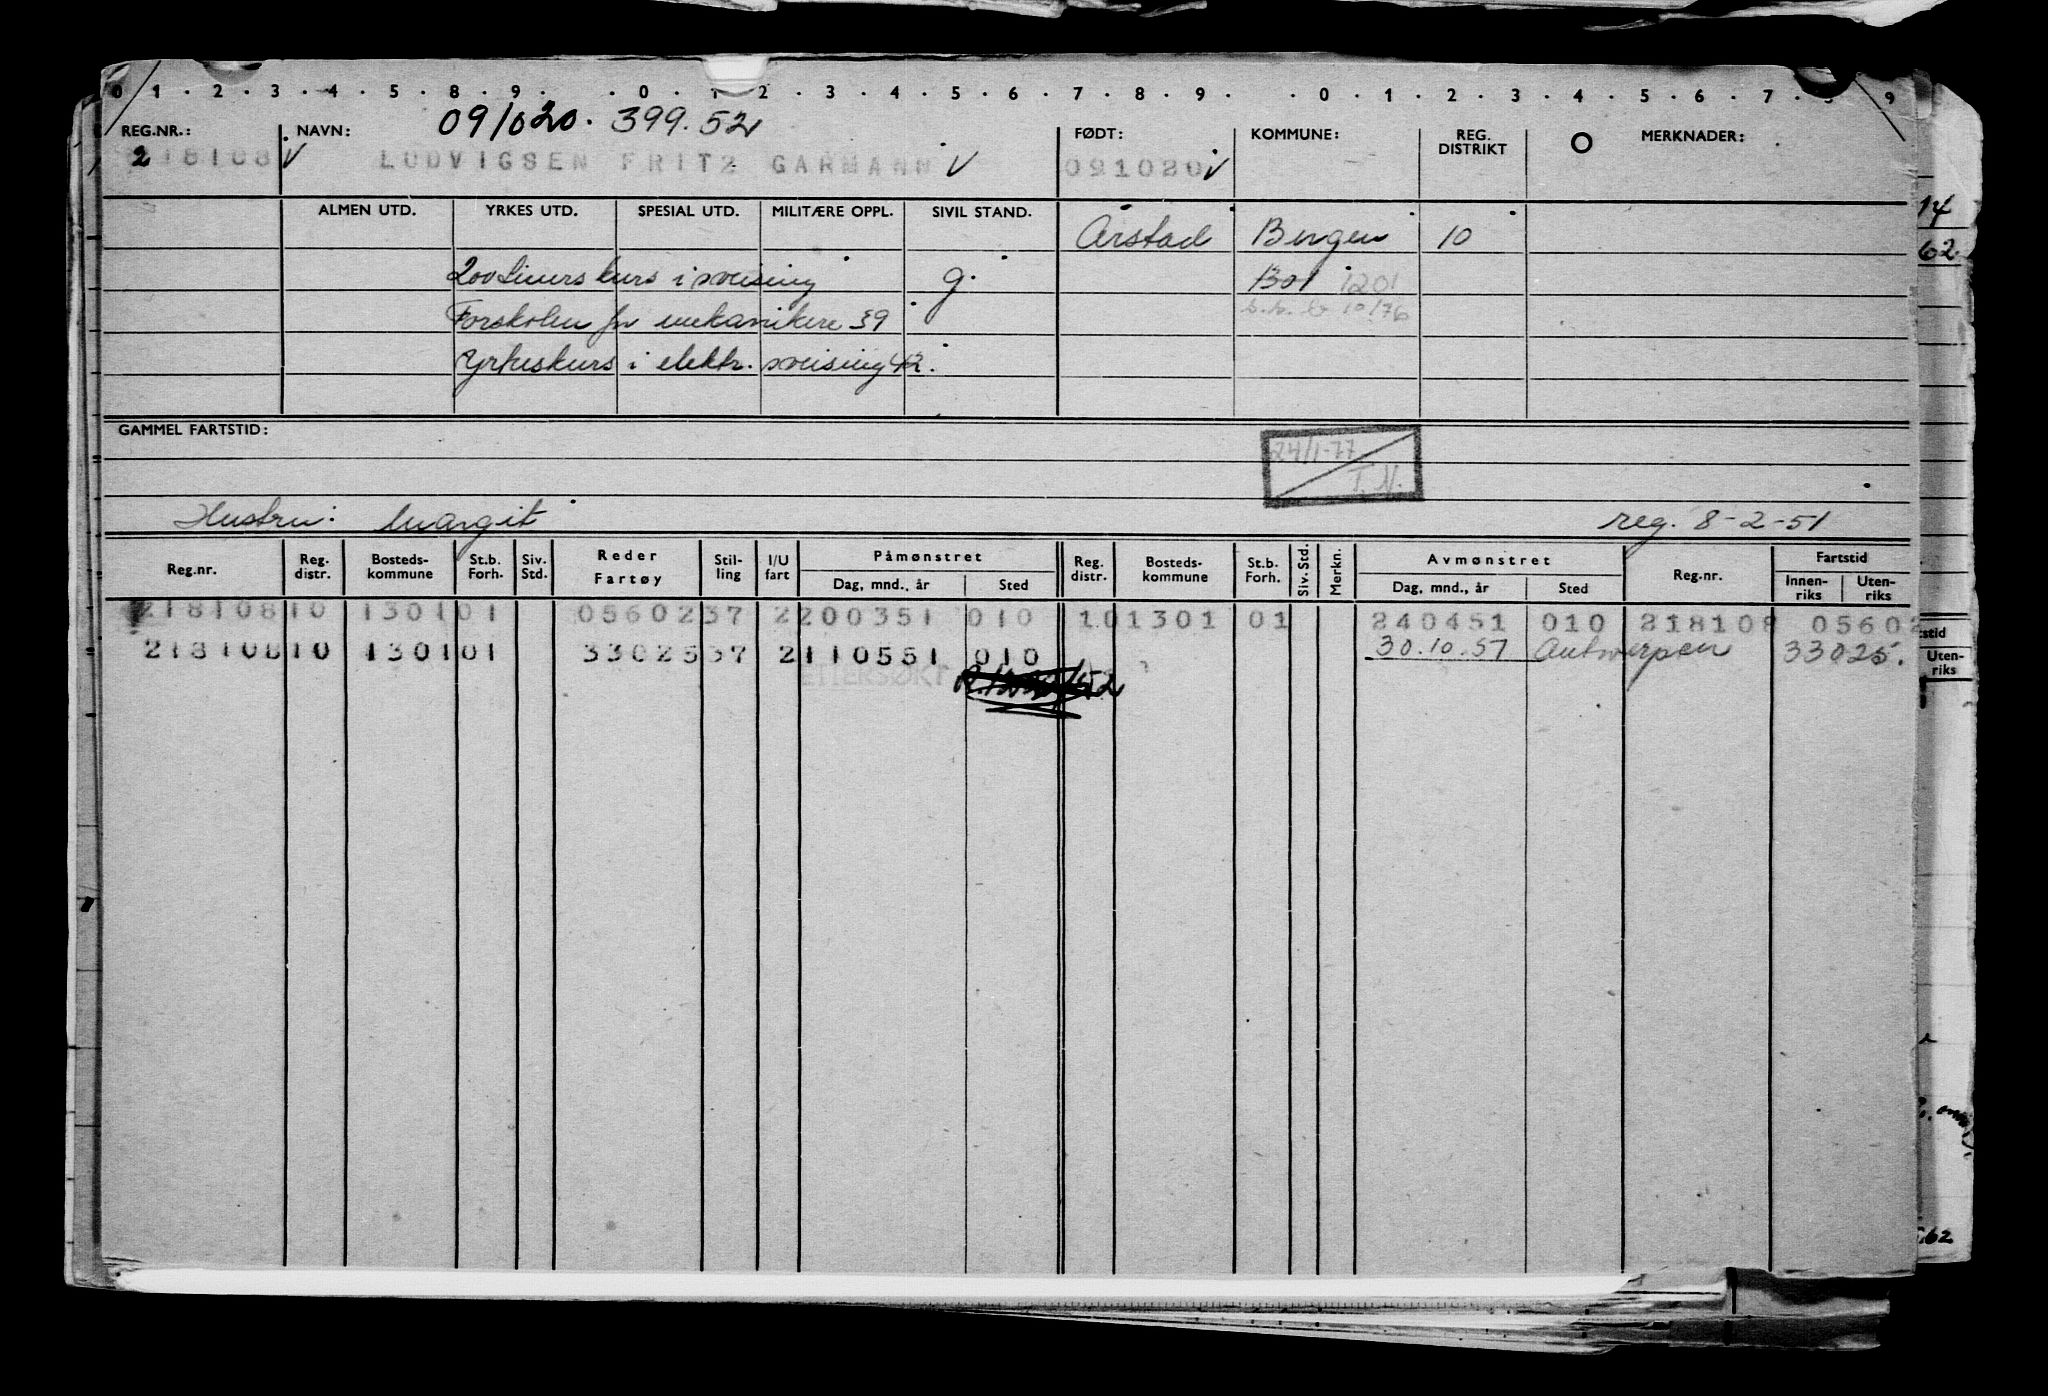 0 1 . 2 . 3 . 4 . 5 . 8 . 9 . . 0 . 1 . 2 . 3 . 4 . 5 . 6 . 7 . 8 . 9 . . 0 . 1 . 2 . 3 . 4 . 5 . 6 . 7 . 8 . 9
09/020. 399.52
REG.NR.: NAVN: FØDT: KOMMUNE: REG. DISTRIKT O MERKNADER:
218108 V LUDVIGSEN FRITZ GARMANN V 091020 V
ALMEN UTD. YRKES UTD. SPESIAL UTD. MILITÆRE OPPL. SIVIL STAND.
Årstad Bergen 10
200 timers kurs i sveising g. 1301 1201
Forskolen for mekanikere 39 10/76
Yrkeskurs i elektr. sveising 42.
GAMMEL FARTSTID:
24/1-77
T.N.
Hustru: Margit reg. 8-2-51
Reg.nr. Reg. distr. Bosteds- kommune St.b. Forh. Siv. Std. Reder Fartøy Stil- ling I/U fart Påmønstret Dag, mnd., år Sted Reg. distr. Bosteds- kommune St.b. Forh. Siv. Std. Merkn. Avmønstret Dag, mnd., år Sted Reg.nr. Fartstid Innen- riks Uten- riks
218108 10 1301 01 05602 37 2 200351 010 10 1301 01 240451 010 218108 05602
218108 10 1301 01 33025 37 2 110551 010 30.10.51 Antwerpen 33025.
ETTERSØKT
14
62
stid
Uten- riks
62